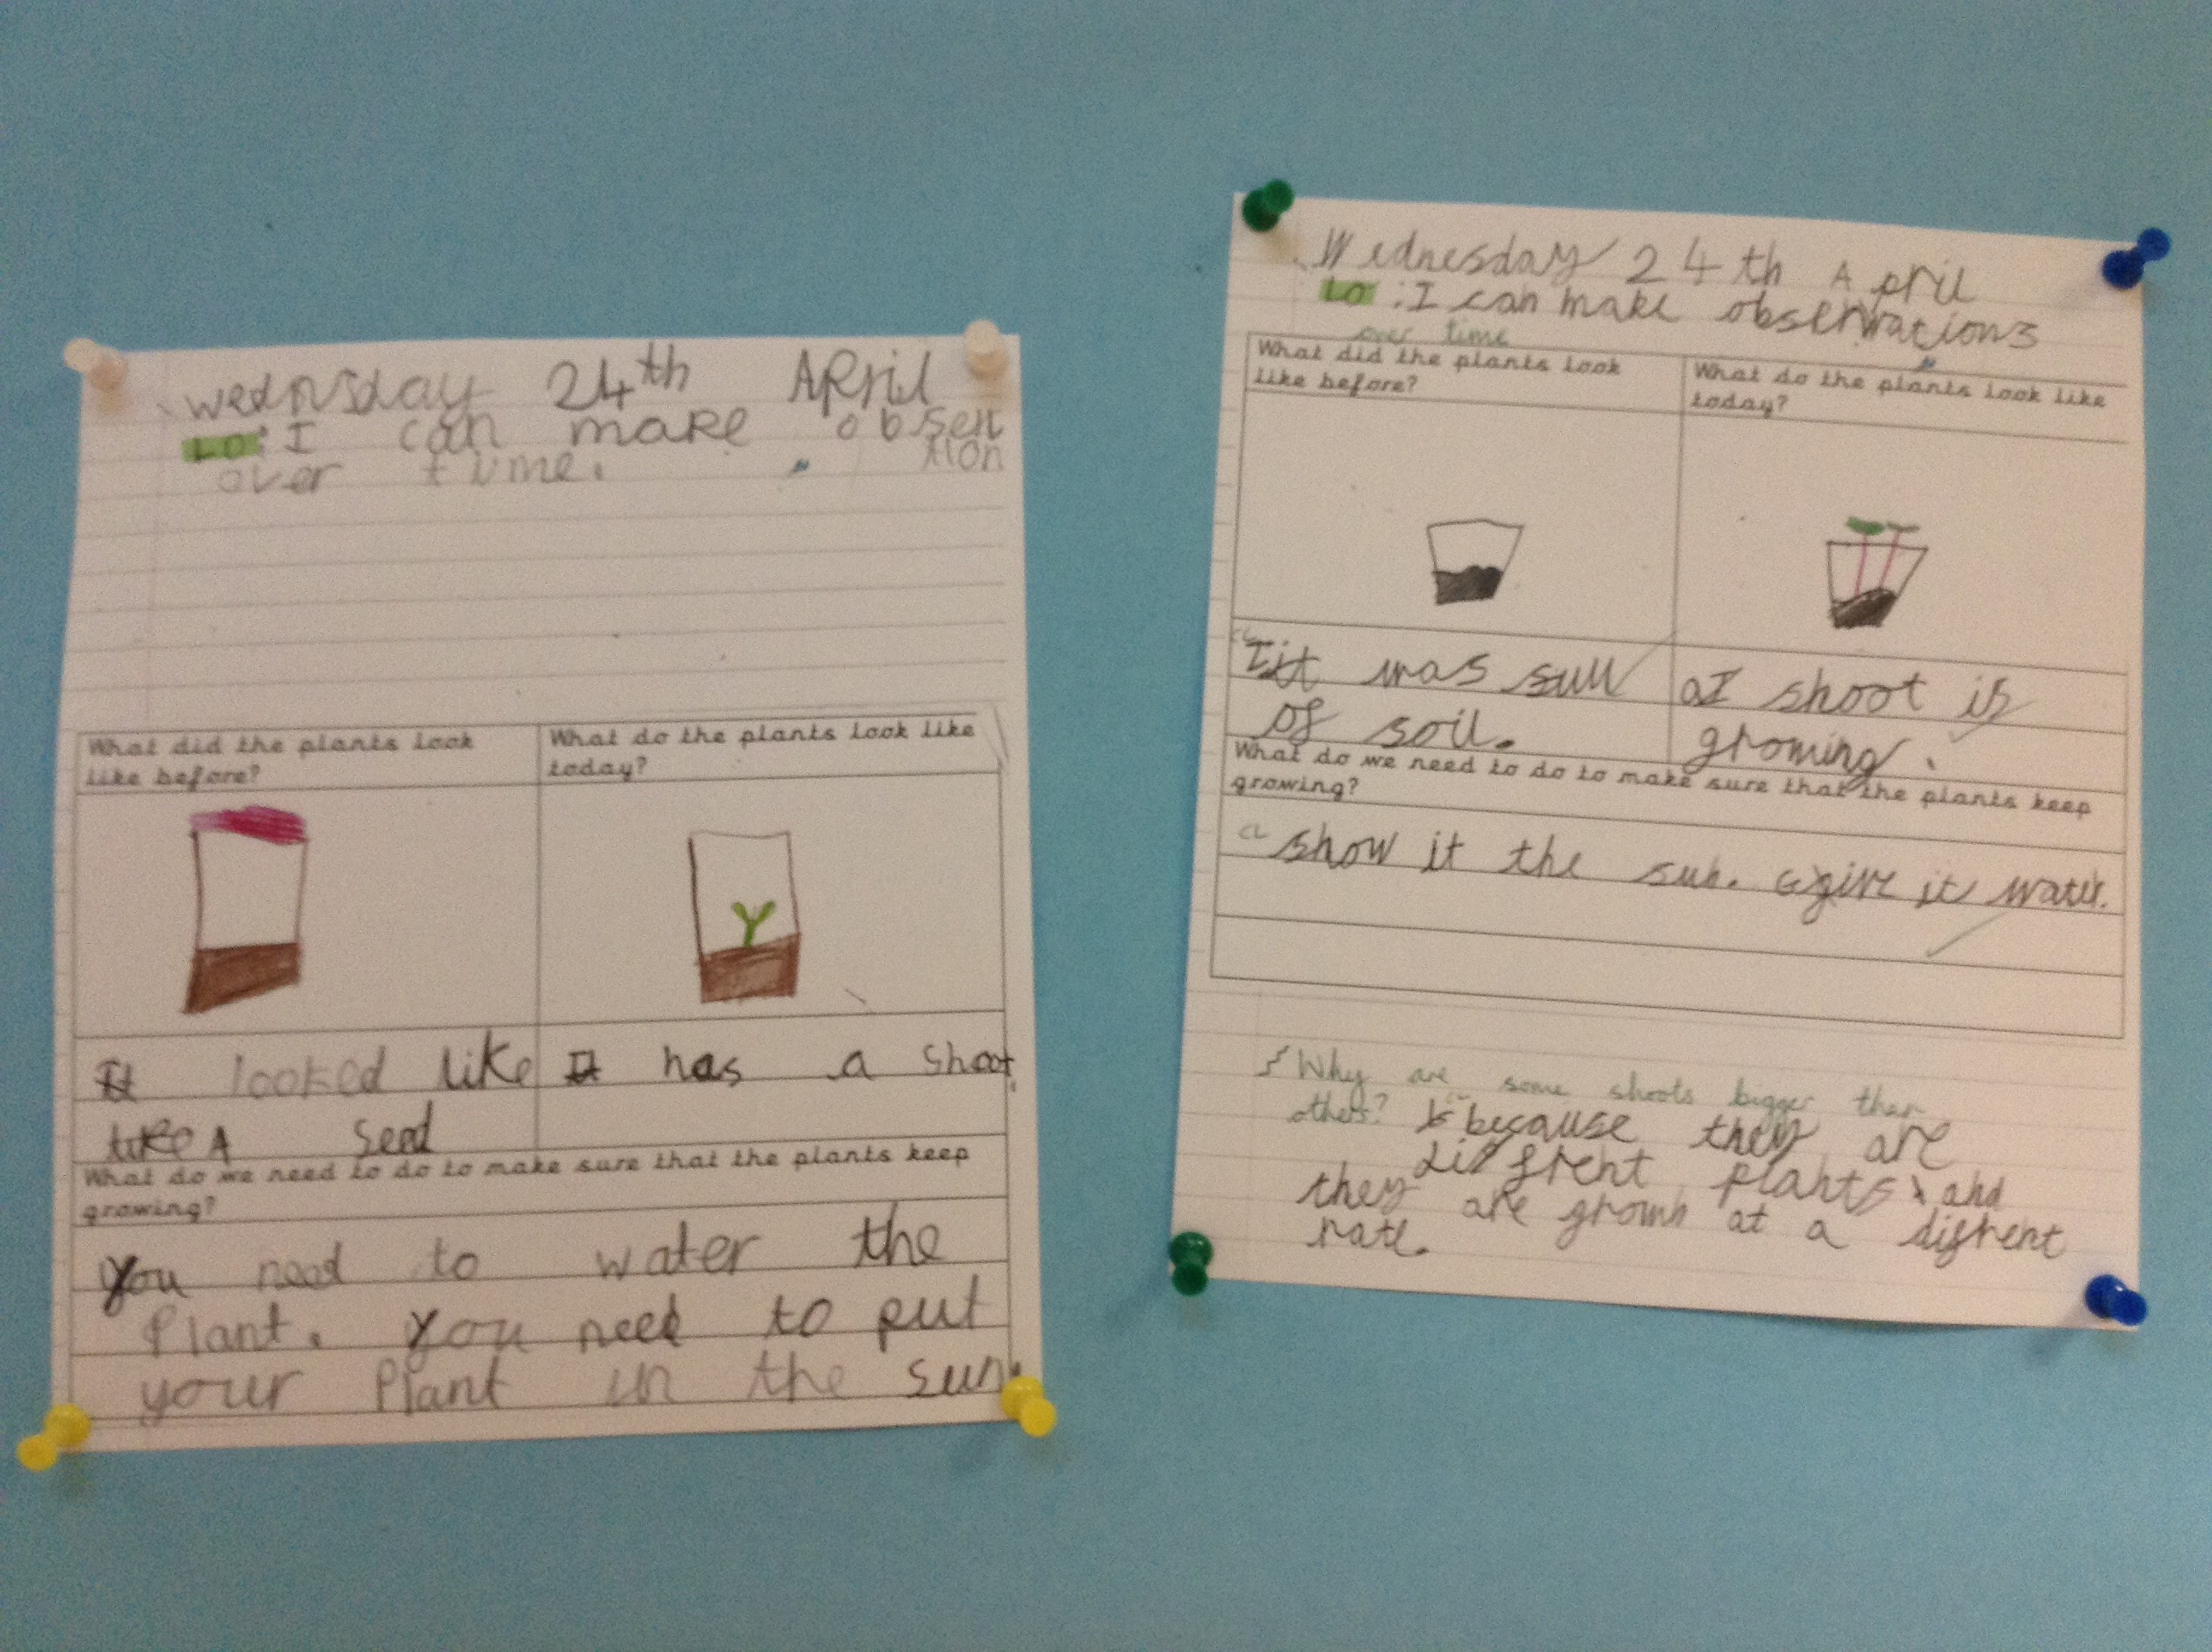 wednsday 24th APRil
LO: I can make obser
tion
over time.
What did the plants look
like before?
What do the plants look like
today?
It looked like
like A seed
It has a shoot.
What do we need to do to make sure that the plants keep
growing?
You need to water the
Plant. You need to put
your Plant in the sun
Wednesday 24th April
LO: I can make observations
over time
What did the plants look
like before?
What do the plants look like
today?
CL
it was full
of soil.
a shoot is
growing.
What do we need to do to make sure that the plants keep
growing?
CL
show it the sun. give it water.
Why are some shoots bigger than
others? because they are
diffrent plants and
they are grown at a diffrent
rate.